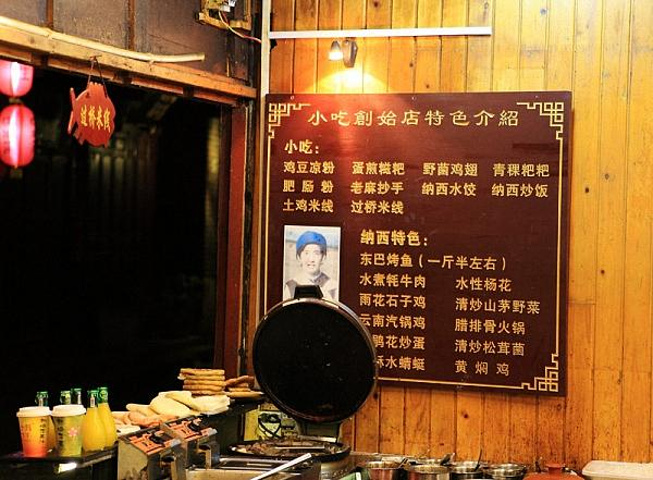 过桥米线
小吃創始店特色介紹
小吃：
鸡豆凉粉 蛋煎糍粑 野菌鸡翅 青稞粑粑
肥肠粉 老麻抄手 纳西水饺 纳西炒饭
土鸡米线 过桥米线
纳西特色：
东巴烤鱼（一斤半左右）
水煮牦牛肉 水性杨花
雨花石子鸡 清炒山茅野菜
云南汽锅鸡 腊排骨火锅
鹃花炒蛋 清炒松茸菌
水蜻蜓 黄焖鸡